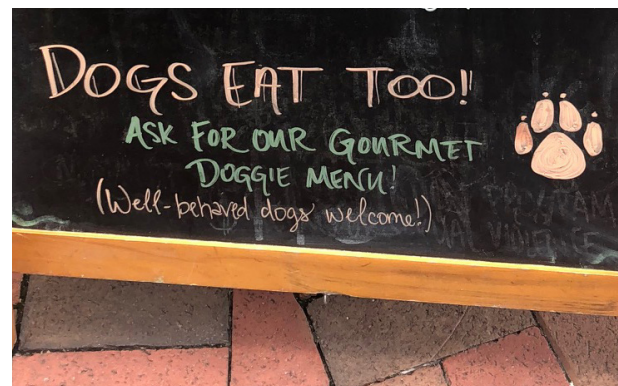 DOGS EAT TOO!
ASK FOR OUR GOURMET
DOGGIE MENU!
(Well-behaved dogs welcome!)
PROGRAM